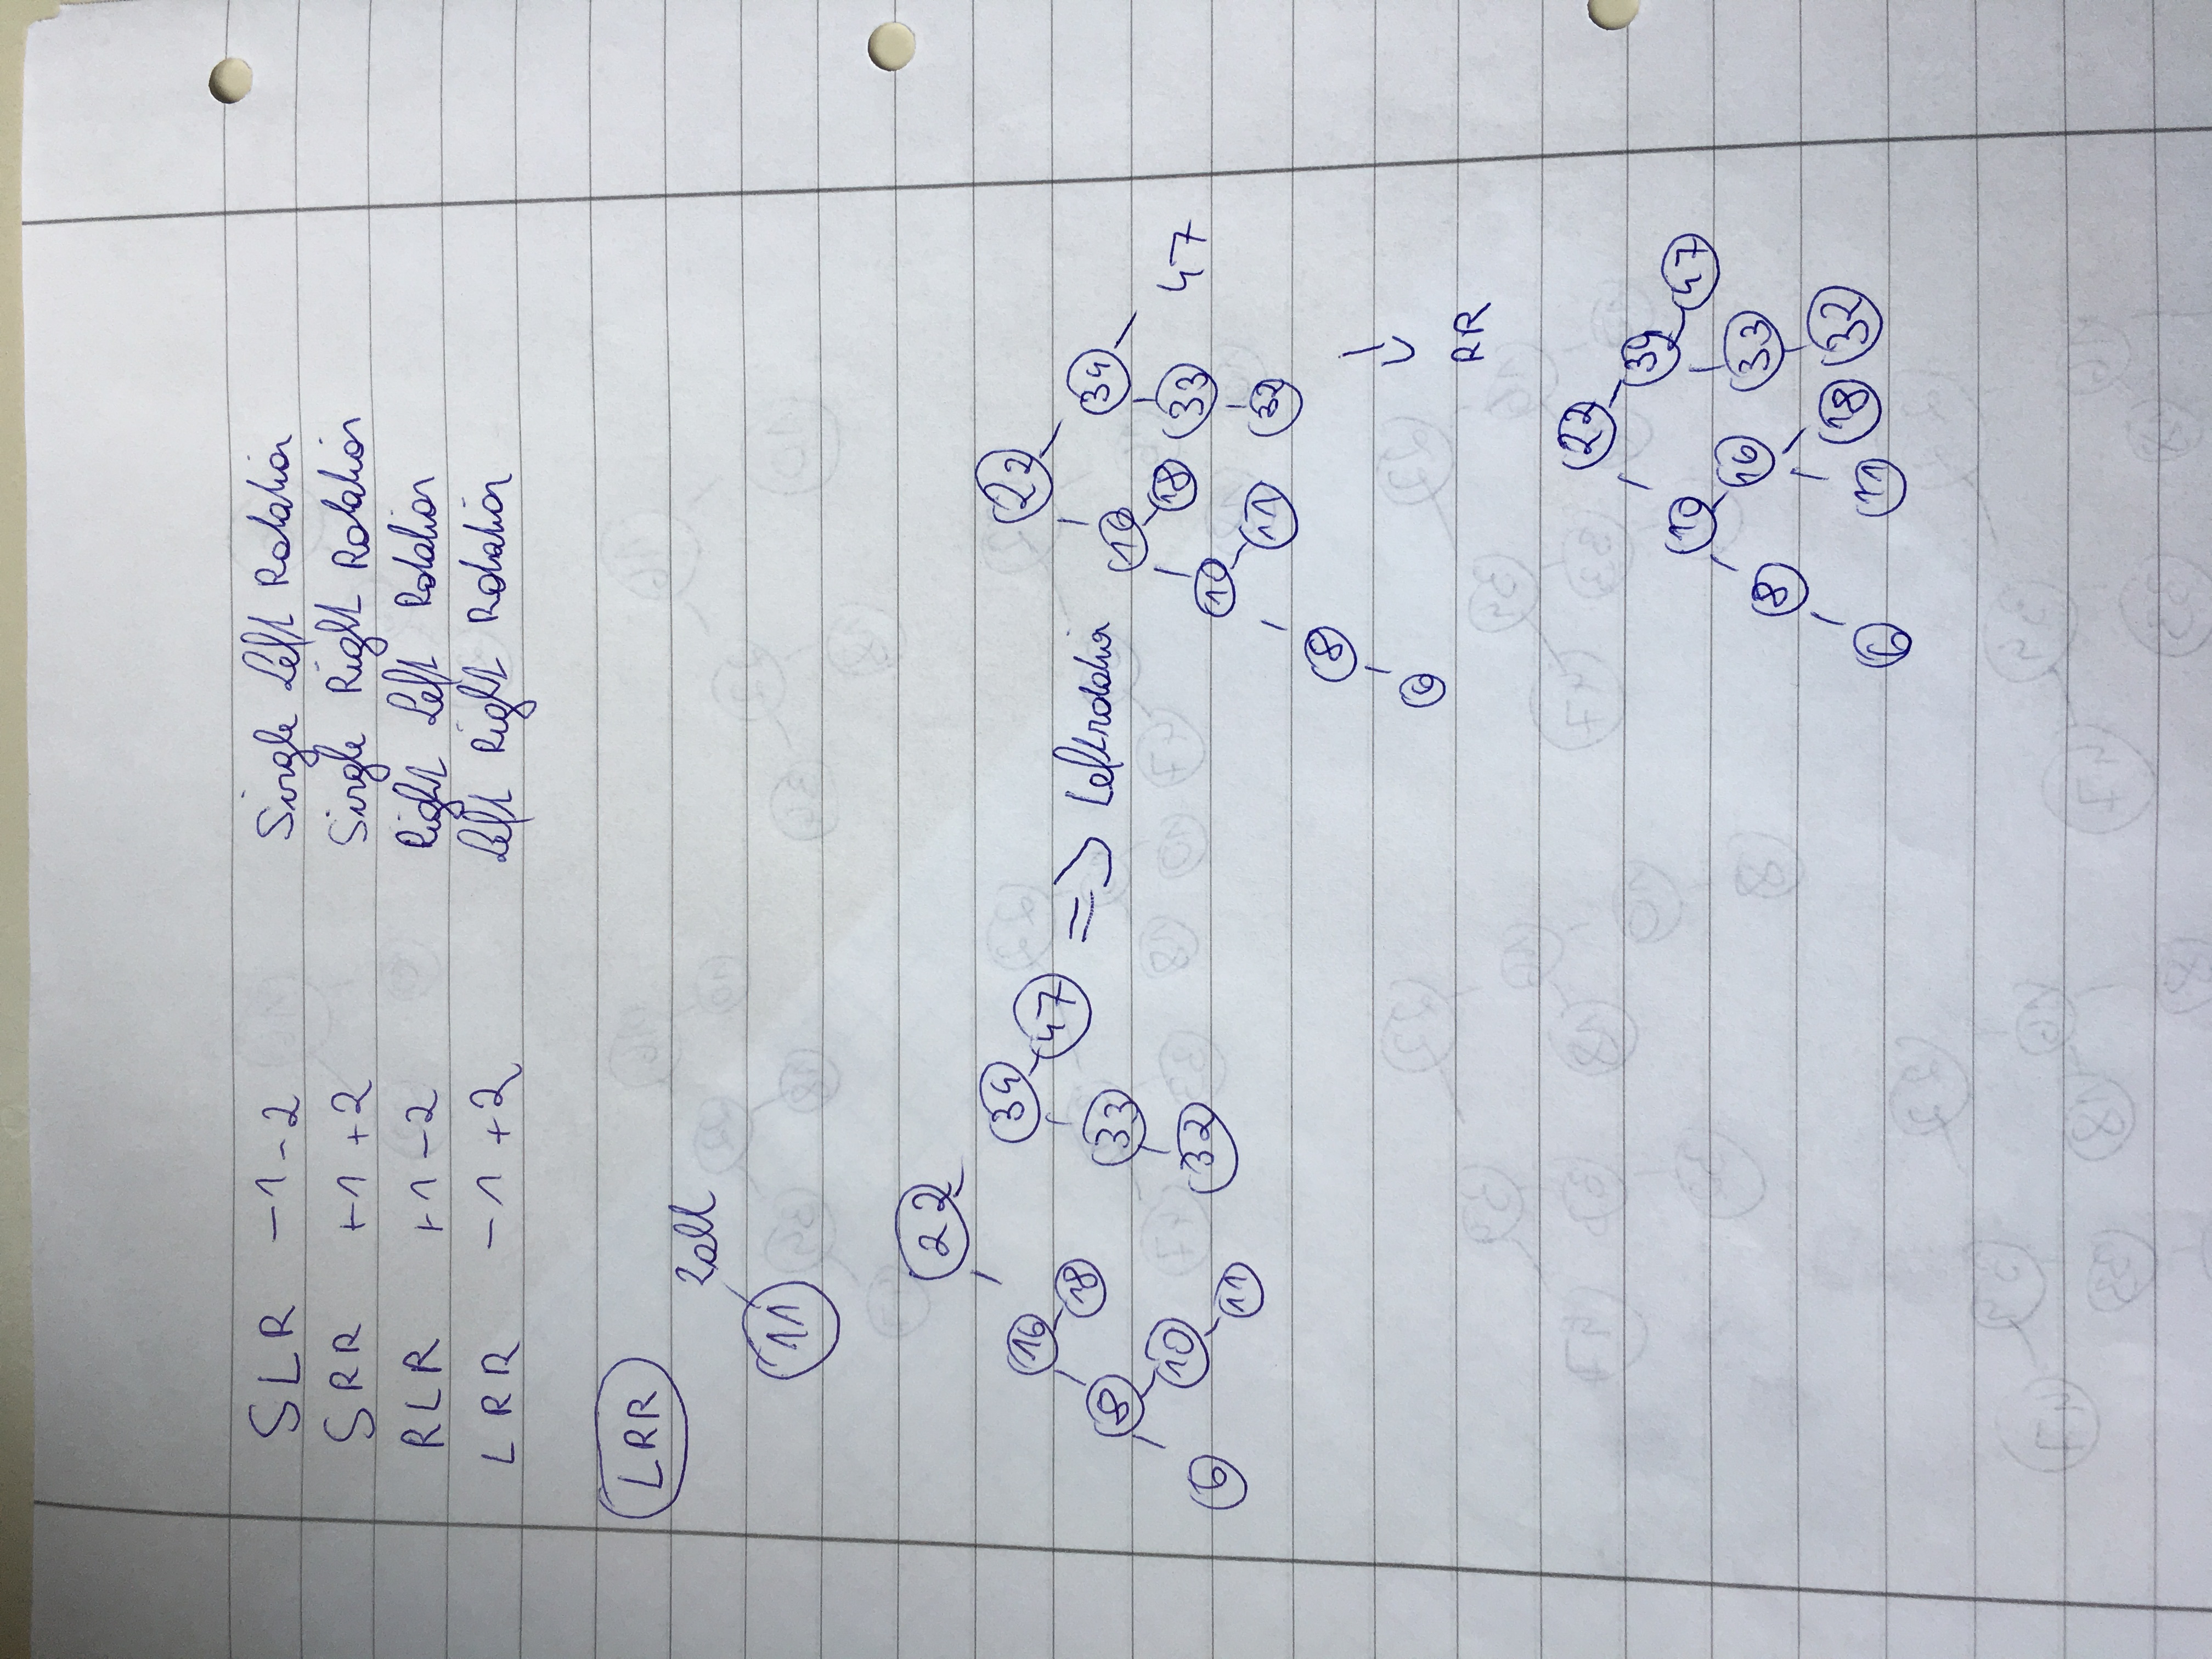 SLR -1 -2 Single Left Rotation
SRR +1 +2 Single Right Rotation
RLR +1 -2 Right Left Rotation
LRR -1 +2 Left Right Rotation
LRR
11
22
16 34
18 47
8 33
6 10 32
11
=> Leftrotation
22
16 34
10 18 33 47
11 32
8
6
↓
RR
22
10 34
8 16 33 47
6 11 18 32